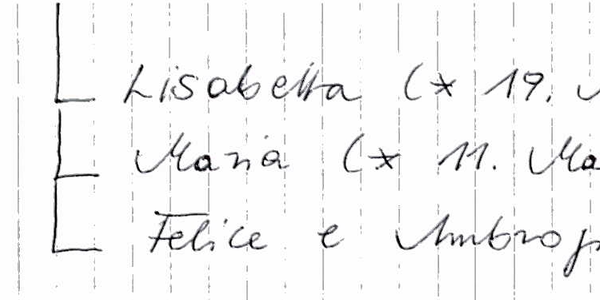 Lisabetta (* 19.
Maria (* 11. Ma
Felice e Ambrog